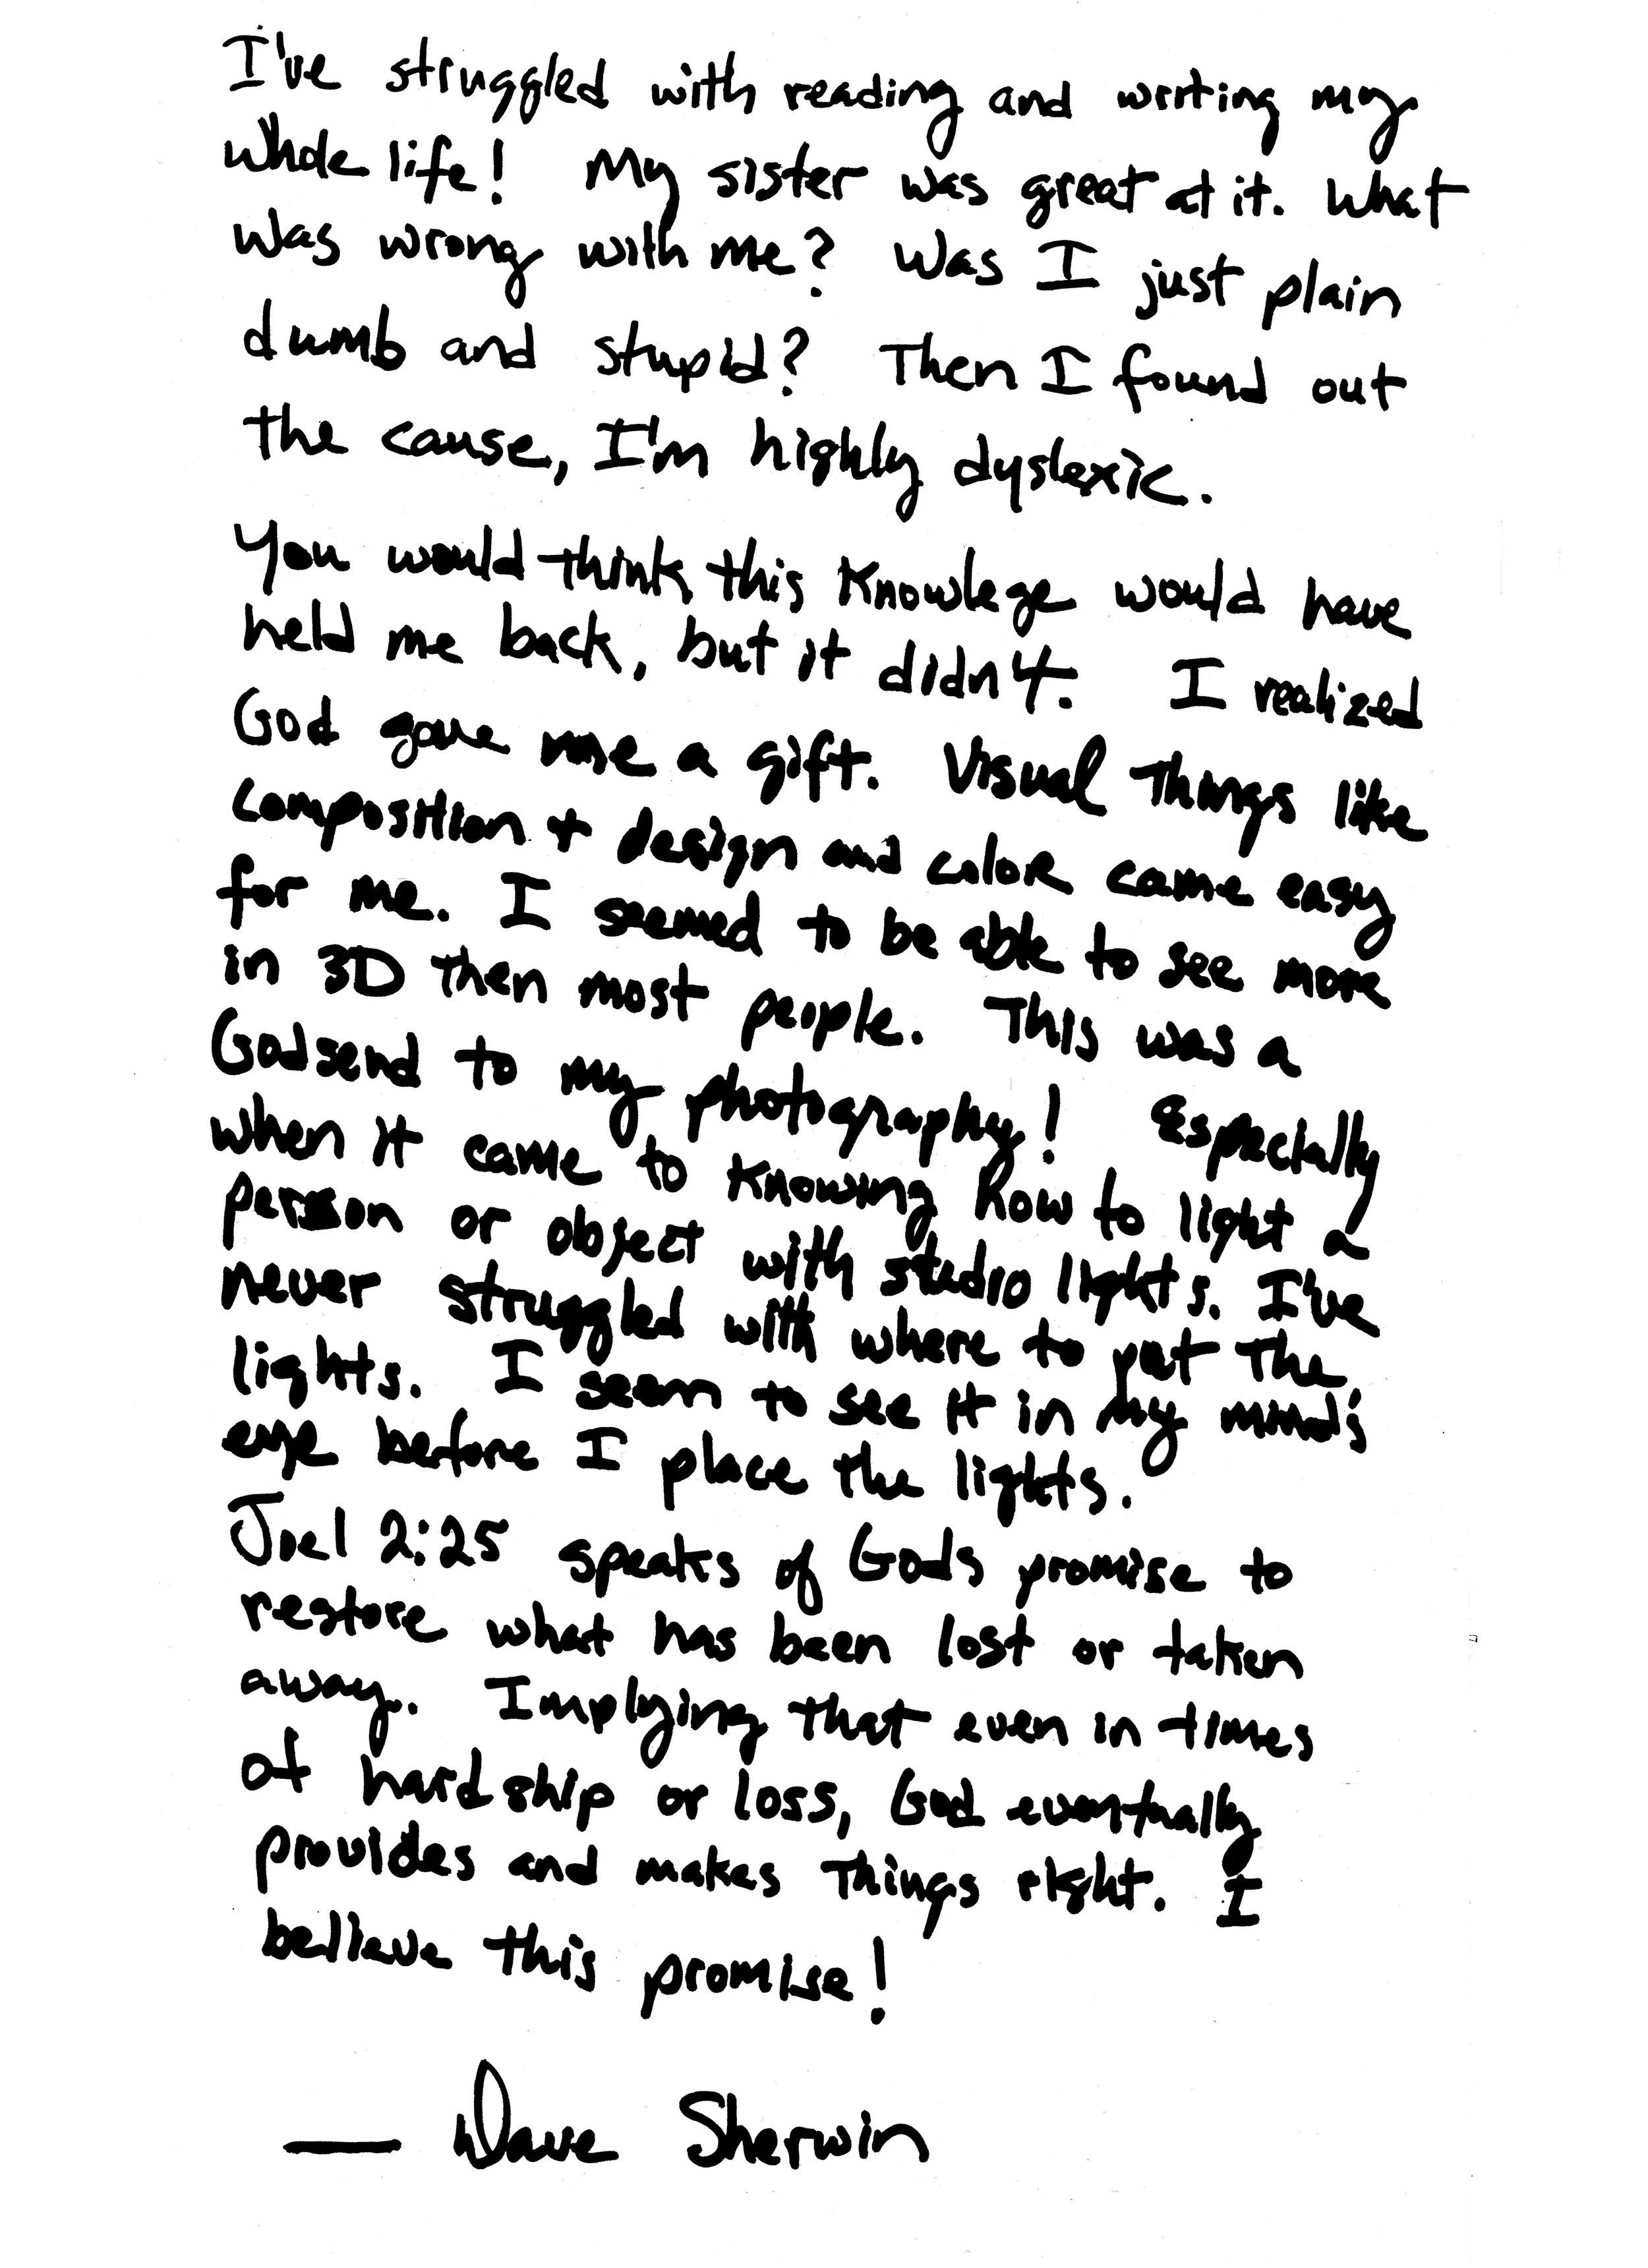 I've struggled with reading and writing my
whole life! My sister was great at it. What
was wrong with me? Was I just plain
dumb and stupid? Then I found out
the cause, I'm highly dyslexic.
You would think this knowlege would have
held me back, but it didn't. I realized
God gave me a gift. Visual Things like
composition + design and color came easy
for me. I seemed to be able to see more
in 3D then most people. This was a
Godsend to my photography! Especially
when it came to knowing how to light a
person or object with studio lights. I've
never struggled with where to put the
lights. I seem to see it in my mind's
eye before I place the lights.
Joel 2:25 speaks of Gods promise to
restore what has been lost or taken
away. Implying that even in times
of hardship or loss, God eventually
provides and makes Things right. I
believe this promise!
— Dave Sherwin